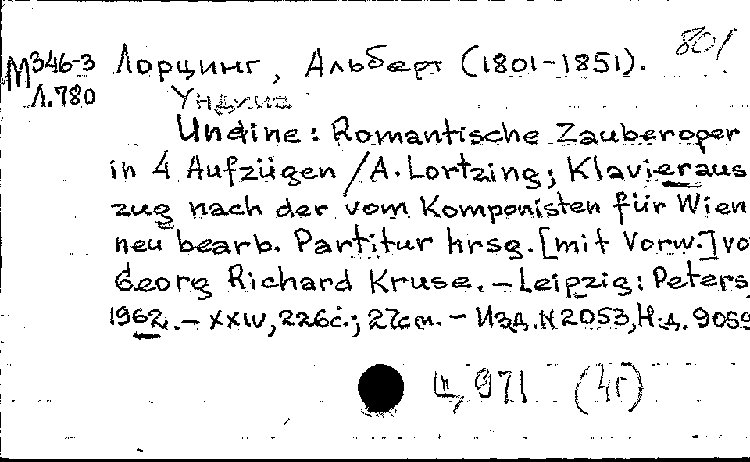 801
М346-3 Лорцинг, Альберт (1801-1851).
Л.780
Ундина
Undine: Romantische Zauberoper
in 4 Aufzügen / A. Lortzing; Klavieraus
zug nach der vom Komponisten für Wien
neu bearb. Partitur hrsg. [mit Vorw.] vo
Georg Richard Kruse. - Leipzig: Peters,
1962. - XXIV, 226с.; 27см. - Изд. N 2053, Н.д. 9059
Ц 971 (4г)